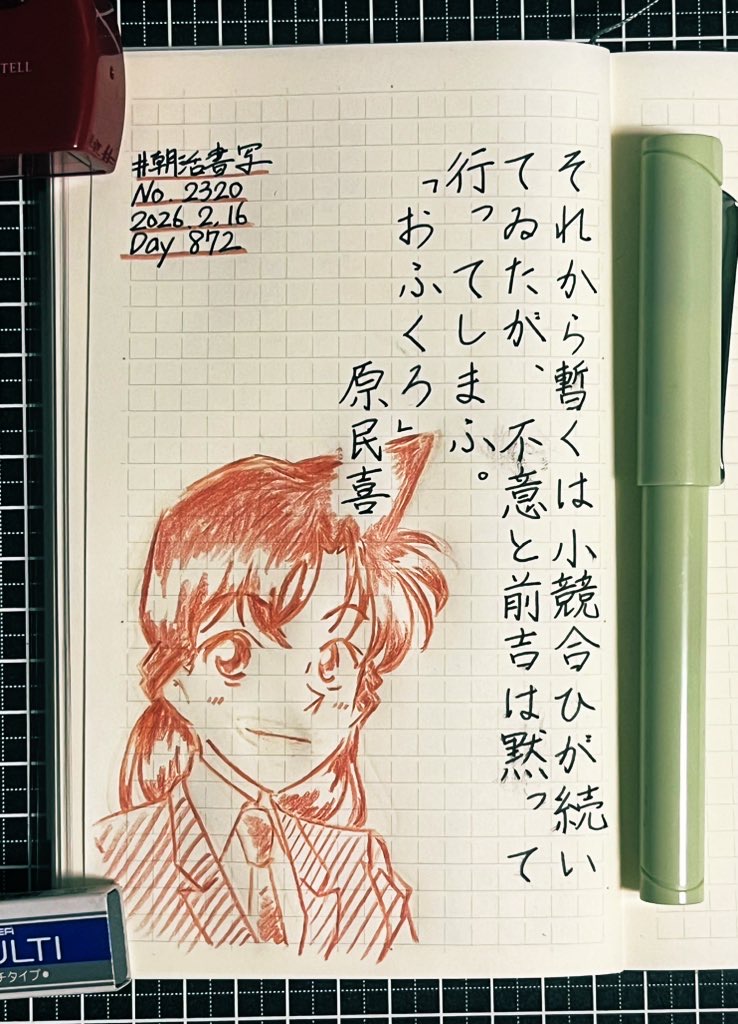 #朝活書写
No. 2320
2026.2.16
Day 872
それから暫くは小競合ひが続い
てゐたが、不意と前吉は黙って
行ってしまふ。
「おふくろ」
原民喜
TELL
ULTI
チタイプ●